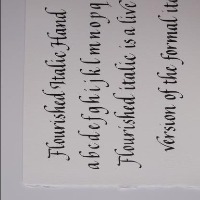 Flourished Italic Hand
a b c d e f g h i j k l m n o p q
Flourished italic is a live
version of the formal ita